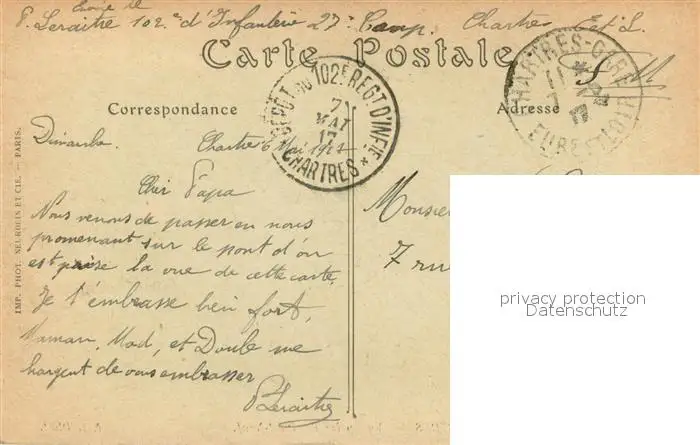 Envoi de
P. Leraitre 102e d'Infanterie 27e Comp. Chartres E et L.
Carte Postale
S M
Correspondance
Adresse
DÉPÔT DU 102E REGT D'INFIE
7
MAI
17
CHARTRES
CHARTRES-GARE
11
7
17
EURE ET LOIR
Dimanche Chartres 6 Mai 1917
Cher Papa
Nous venons de passer en nous
promenant sur le pont d'où
est prise la vue de cette carte.
Je t'embrasse bien fort,
Maman, Mad, et Double me
chargent de vous embrasser
PLeraitre
Monsie
7 rue
IMP. PHOT. NEURDEIN ET CIE. — PARIS.
privacy protection
Datenschutz